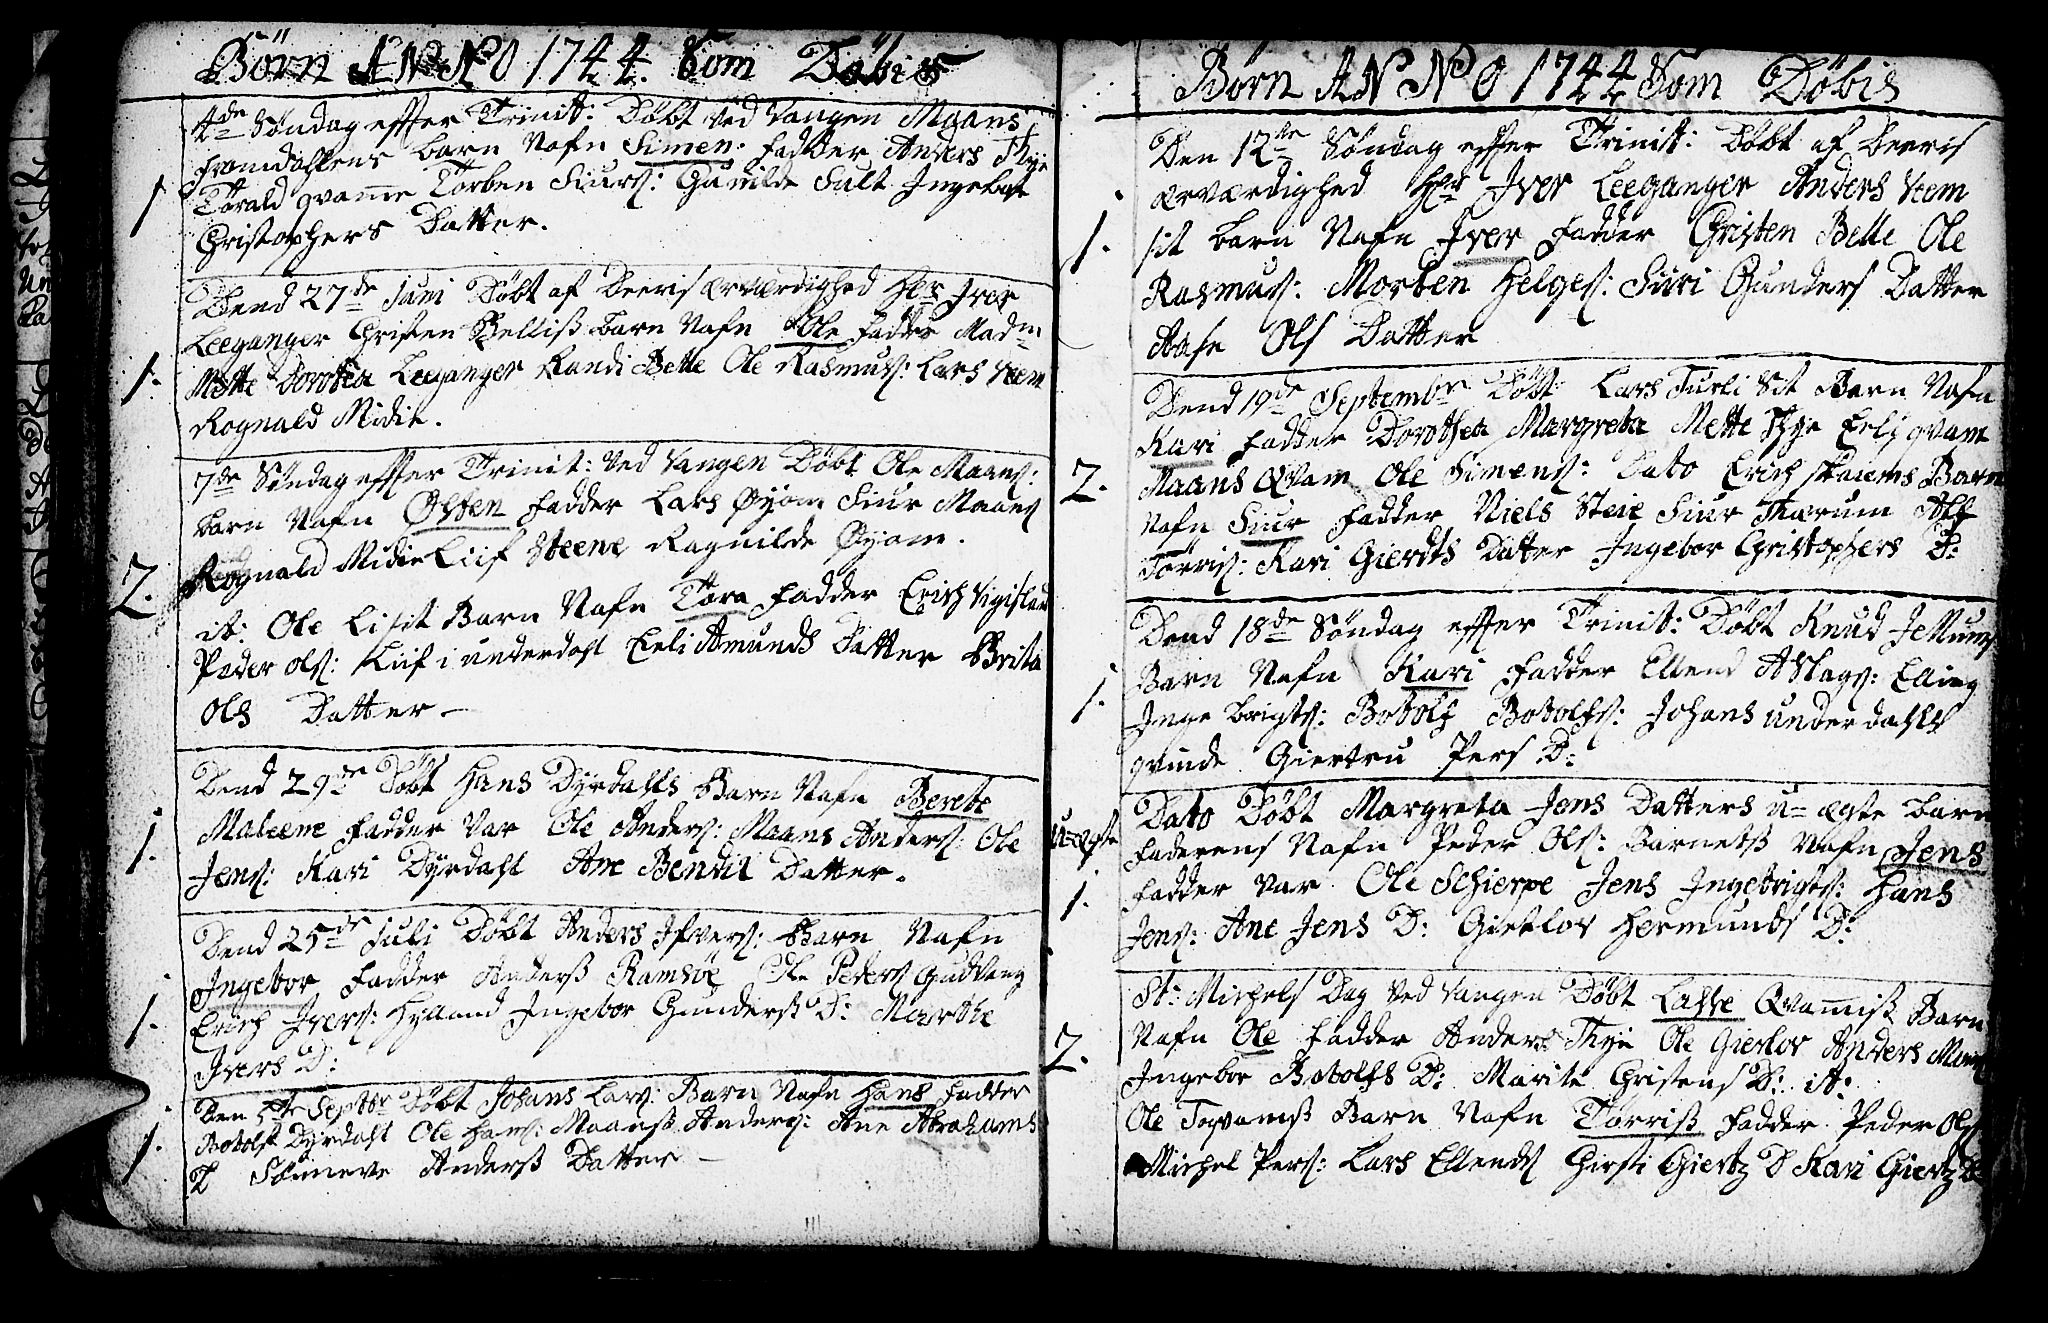 Börn ANNO 1744 Som Döbis
4de Söndag effter Trinit: Döbt ved Vangen Maans
Fromdahlens barn Nafn Simen. Fadder Anders Thye
1 Torald qvame Torben Siurs: Gunilde Sult Ingebor
Christophers Datter.
Dend 27de Juni Döbt af Deeris ærværdighed Her Iver
Leeganger Christen Belliss barn Nafn Ole Fadder Madm
1. Mette Dorothea Leeganger Randi Belle Ole Rasmuss: Lars Steem
Rognald Midie.
7de Söndag effter Trinit: Ved Vangen Döbt Ole Maans:
barn Nafn Östen Fadder Lars Öyom Siur Maans
2. Rognald Midie Liif Steene Ragnilde Öyom.
it: Ole Li sit Barn Nafn Tora Fadder Erich
Peder Ols: Liif i underdahl Eeli Amunds Datter Brita
Ols Datter
Dend 29de Döbt Hans Dyrdahls Barn Nafn Berete
1. Maleene Fadder Var Ole Anders: Maans Anders: Ole
Jens: Kari Dyrdahl Ane Bendit Datter.
Dend 25de Juli Döbt Anders Ifvers: Barn Nafn
Ingebor Fadder Anderss Ramsöe Ole Peders Gudvang
1. Erich Ivers: Hylland Ingebor Gunderss D: Marthe
Ivers D:
Den 5te Septbr Döbt Johans Lars: Barn Nafn Hans Fadder
1. Botolf Dyrdahl Ole Hans: Maanss Anders: Ane Abrahams
D Sönneve Anderss Datter
Börn ANNO 1744 Som Döbis
Den 12te Söndag effter Trinit: Döbt af Deeris
ærværdighed Her Iver Leeganger Anders Steem
1. sit barn Nafn Iver Fadder Christen Belle Ole
Rasmuss: Morten Helges: Siiri Gunders Datter
Aase Ols Datter
Dend 19de Septembr Döbt Lars Turli Sit Barn Nafn
Kari Fadder Dorothea Margreta Mette Thye Eeli qvam
2. Maans Qvam Ole Simens: Dato Erich Skaiems Barn
Nafn Siur Fadder Niels Steie Siur Thærum
Torris: Kari Gierdts Datter Ingebor Christophers D:
Dend 18de Söndag effter Trinit: Döbt Knud Jellums
1. Barn Nafn Kari Fadder Ellend Aslags: Elling
Ingebrigts: Botolf Botolfs: Johans underdahls
qvinde Giertru Pers D:
Dato Döbt Margreta Jens Datters u=ægte barn
u=ægte Faderens Nafn Peder Ols: Barnetss Nafn Jens
1. Fadder Var Ole Schierpe Jens Ingebrigts: Hans
Jens: Ane Jens D: Gietlov Hermunds D:
St: Michels Dag Ved Vangen Döbt Lasse Qvamiss Barn
2. Nafn Ole Fadder Anders Thye Ole Gierlov Anders
Ingebor Botolfs D: Marite Christens D: it:
Ole Tevamss Barn Nafn Torriss Fadder Peder Ols
Michel Pers: Lars Ellends Girsti Giertz D Kari Giertz D